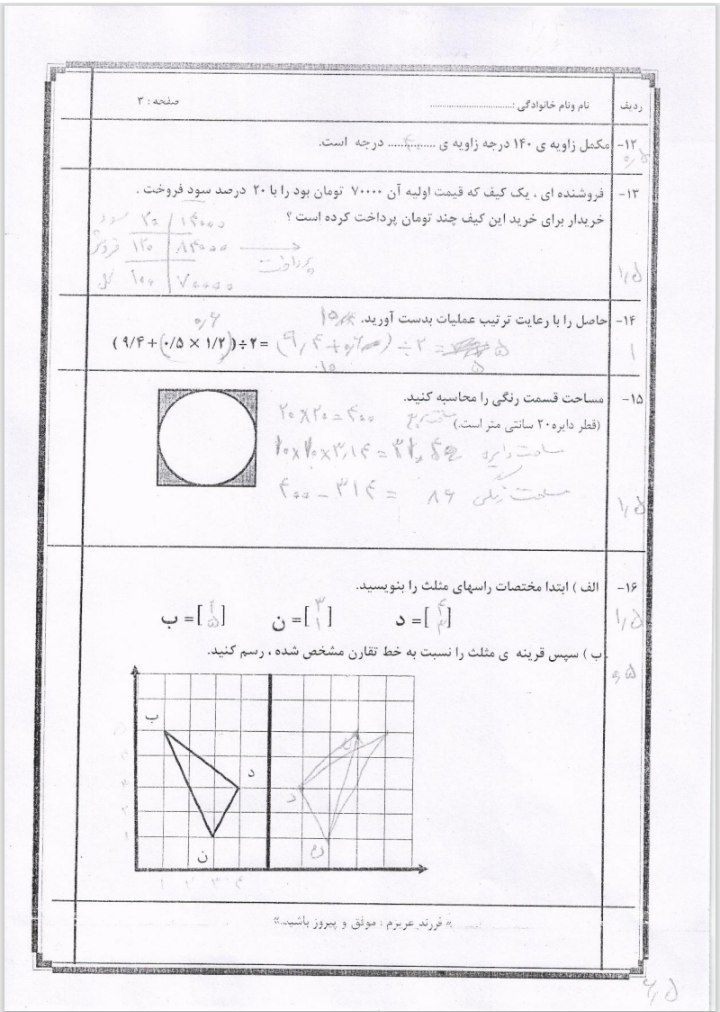 ردیف نام ونام خانوادگی :.............................. صفحه : ۳
۱۲- مکمل زاویه ی ۱۴۰ درجه زاویه ی .............. درجه است.
۰٫۵
۱۳- فروشنده ای ، یک کیف که قیمت اولیه آن ۷۰۰۰۰ تومان بود را با ۲۰ درصد سود فروخت .
خریدار برای خرید این کیف چند تومان پرداخت کرده است ؟
سود ۲۰ ۱۴۰۰۰
فروش ۱۲۰ ۸۴۰۰۰ پرداخت
کل ۱۰۰ ۷۰۰۰۰
۱٫۵
۱۴- حاصل را با رعایت ترتیب عملیات بدست آورید.
۰٫۶
( ۹/۴ + (۰/۵ × ۱/۲) ) ÷ ۲ = (۹٫۴ + ۰٫۶) ÷ ۲ = ۵
۱۰ ۵
۱
۱۵- مساحت قسمت رنگی را محاسبه کنید.
(قطر دایره ۲۰ سانتی متر است.)
۲۰×۲۰=۴۰۰ مساحت مربع
۱۰×۱۰×۳٫۱۴= مساحت دایره
۴۰۰ - ۳۱۴ = ۸۶ مساحت رنگی
۱٫۵
۱۶- الف ) ابتدا مختصات راسهای مثلث را بنویسید.
د =[۴ ۳] ن =[۳ ۱] ب =[۱ ۵]
۱٫۵
ب ) سپس قرینه ی مثلث را نسبت به خط تقارن مشخص شده ، رسم کنید.
۰٫۵
ب
د د
ن ن
۱ ۲ ۳ ۴
« فرزند عزیزم : موفق و پیروز باشید.»
۶٫۵